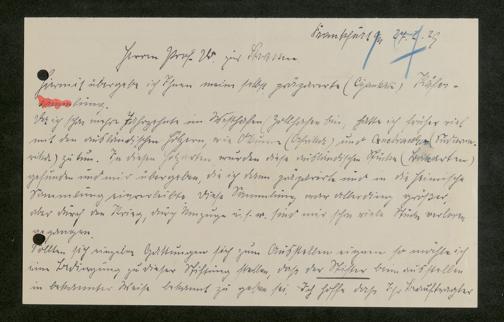 Frankfurt a/M 27.2.29
Herrn Prof. Dr. zur Strassen
Hiermit übergebe ich Ihnen meine selbst präparierte (Cigarren) Käfer-
Sammlung.
Da ich schon mehre Jahrzehnte im Westhafen, Zollhafen bin, hatte ich früher viel
mit den ausländischen Hölzern, wie (Afrika) und (Südame-
rika) zu tun. In diesen Holzarten wurden diese ausländischen Stücke
gefunden und mir übergeben, die ich dann präparierte und in die heimische
Sammlung einverleibte. Diese Sammlung war allerdings größer,
aber durch den Krieg, durch Umzüge u.s.w. sind mir schon viele Stücke verloren
gegangen.
Sollten sich einzelne Gattungen sich zum Ausstellen eignen so möchte ich
eine Bedingung zu dieser Stiftung stellen, dass der Stifter beim ausstellen
in bekannter Weise bekannt zu geben sei. Ich hoffe dass Ihr Beauftragter